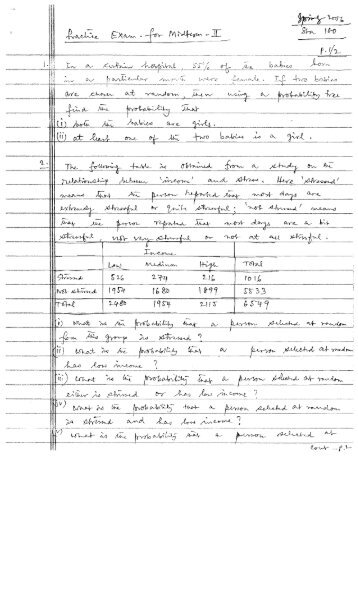 Spring 2006
Sta 100
Practice Exam - for Midterm - II
p. 1/2
1. In a certain hospital, 55% of the babies born
in a particular month were female. If two babies
are chosen at random then using a probability tree
find the probability that
(i) both the babies are girls.
(ii) at least one of the two babies is a girl.
2. The following table is obtained from a study on the
relationship between 'income' and stress. Here 'stressed'
means that the person reported that most days are
extremely stressful or quite stressful; 'not stressed' means
that the person reported that most days are a bit
stressful, not very stressful or not at all stressful.
Income
Low Medium High Total
Stressed 526 274 216 1016
Not stressed 1954 1680 1899 5533
Total 2480 1954 2115 6549
(i) what is the probability that a person selected at random
from this group is stressed?
(ii) what is the probability that a person selected at random
has low income?
(iii) what is the probability that a person selected at random
either is stressed or has low income?
(iv) what is the probability that a person selected at random
is stressed and has low income?
(v) what is the probability that a person selected at
cont - p. 2